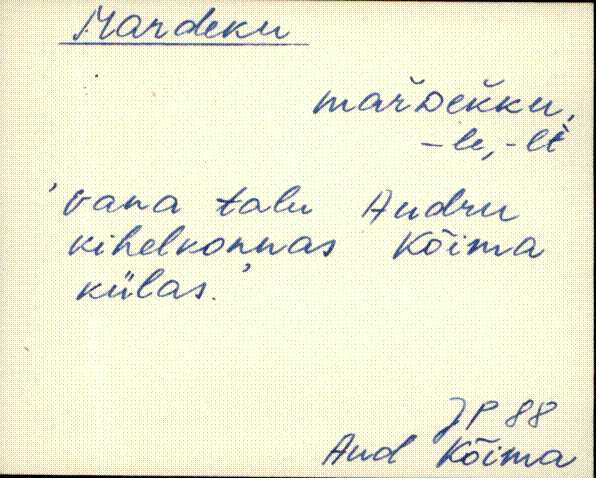 Mardeku
mařDeǩku,
-le, -lt
'vana talu Audru
kihelkonnas Kõima
külas.'
JP 88
Aud Kõima